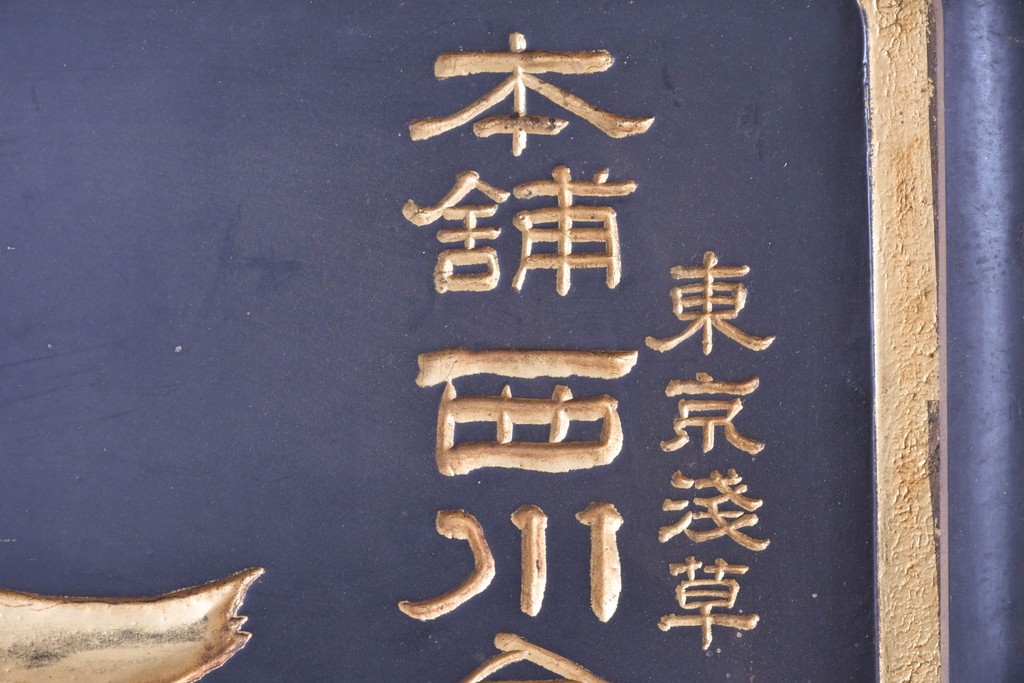 東京淺草
本舖西川